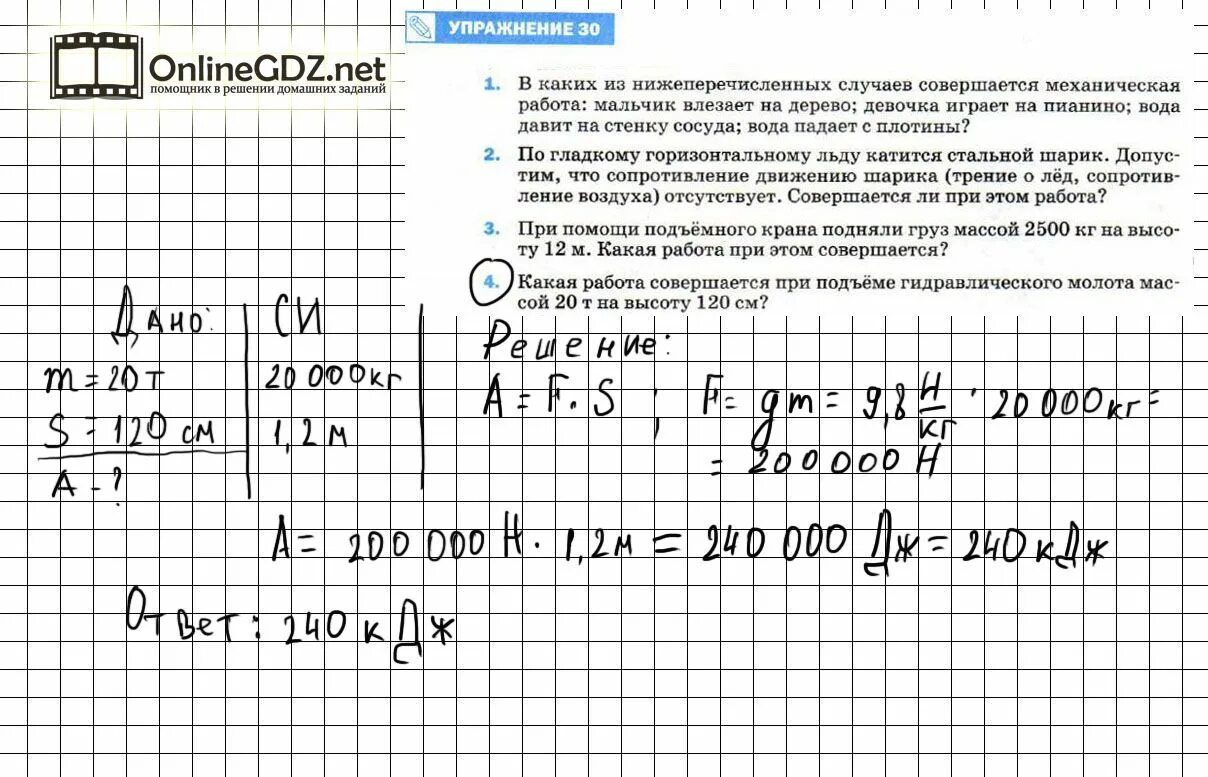 OnlineGDZ.net
помощник в решении домашних заданий
УПРАЖНЕНИЕ 30
1. В каких из нижеперечисленных случаев совершается механическая
работа: мальчик влезает на дерево; девочка играет на пианино; вода
давит на стенку сосуда; вода падает с плотины?
2. По гладкому горизонтальному льду катится стальной шарик. Допус-
тим, что сопротивление движению шарика (трение о лёд, сопротив-
ление воздуха) отсутствует. Совершается ли при этом работа?
3. При помощи подъёмного крана подняли груз массой 2500 кг на высо-
ту 12 м. Какая работа при этом совершается?
4. Какая работа совершается при подъёме гидравлического молота мас-
сой 20 т на высоту 120 см?
Дано: СИ
Решение:
m = 20 т 20 000 кг
A = F · S ; F = gm = 9,8 Н/кг · 20 000 кг =
S = 120 см 1,2 м
= 200 000 Н
A - ?
A = 200 000 Н · 1,2 м = 240 000 Дж = 240 кДж
Ответ: 240 кДж